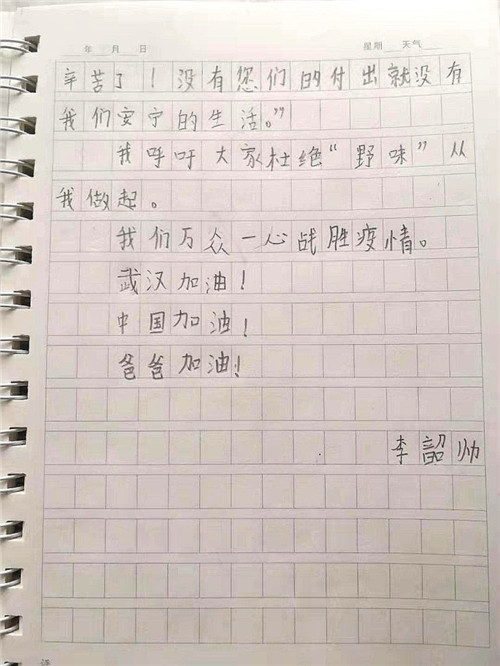 年 月 日 星期 天气
辛苦了！没有您们的付出就没有
我们安宁的生活。”
我呼吁大家杜绝“野味”从
我做起。
我们万众一心战胜疫情。
武汉加油！
中国加油！
爸爸加油！
李韶帅